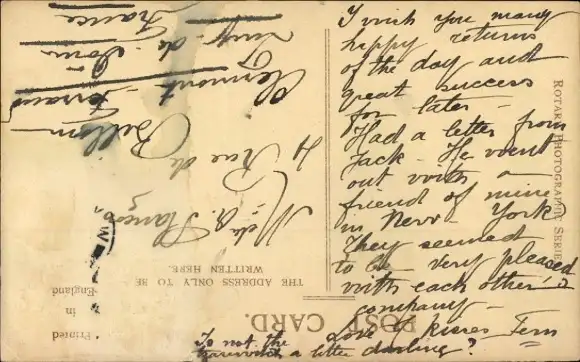 I wish you many
happy returns
of the day and
great success
for later -
Had a letter from
Jack - He went
out with a
friend of mine
in New-York
They seemed
to be very pleased
with each other's
company -
Love & Kisses
To not the
a letter darling?
4 Rue de
Clermont-Ferrand
Puy-de-Dôme
France
POST CARD.
THE ADDRESS ONLY TO BE
WRITTEN HERE.
ROTARY PHOTOGRAPHIC SERIES
Printed
in
England